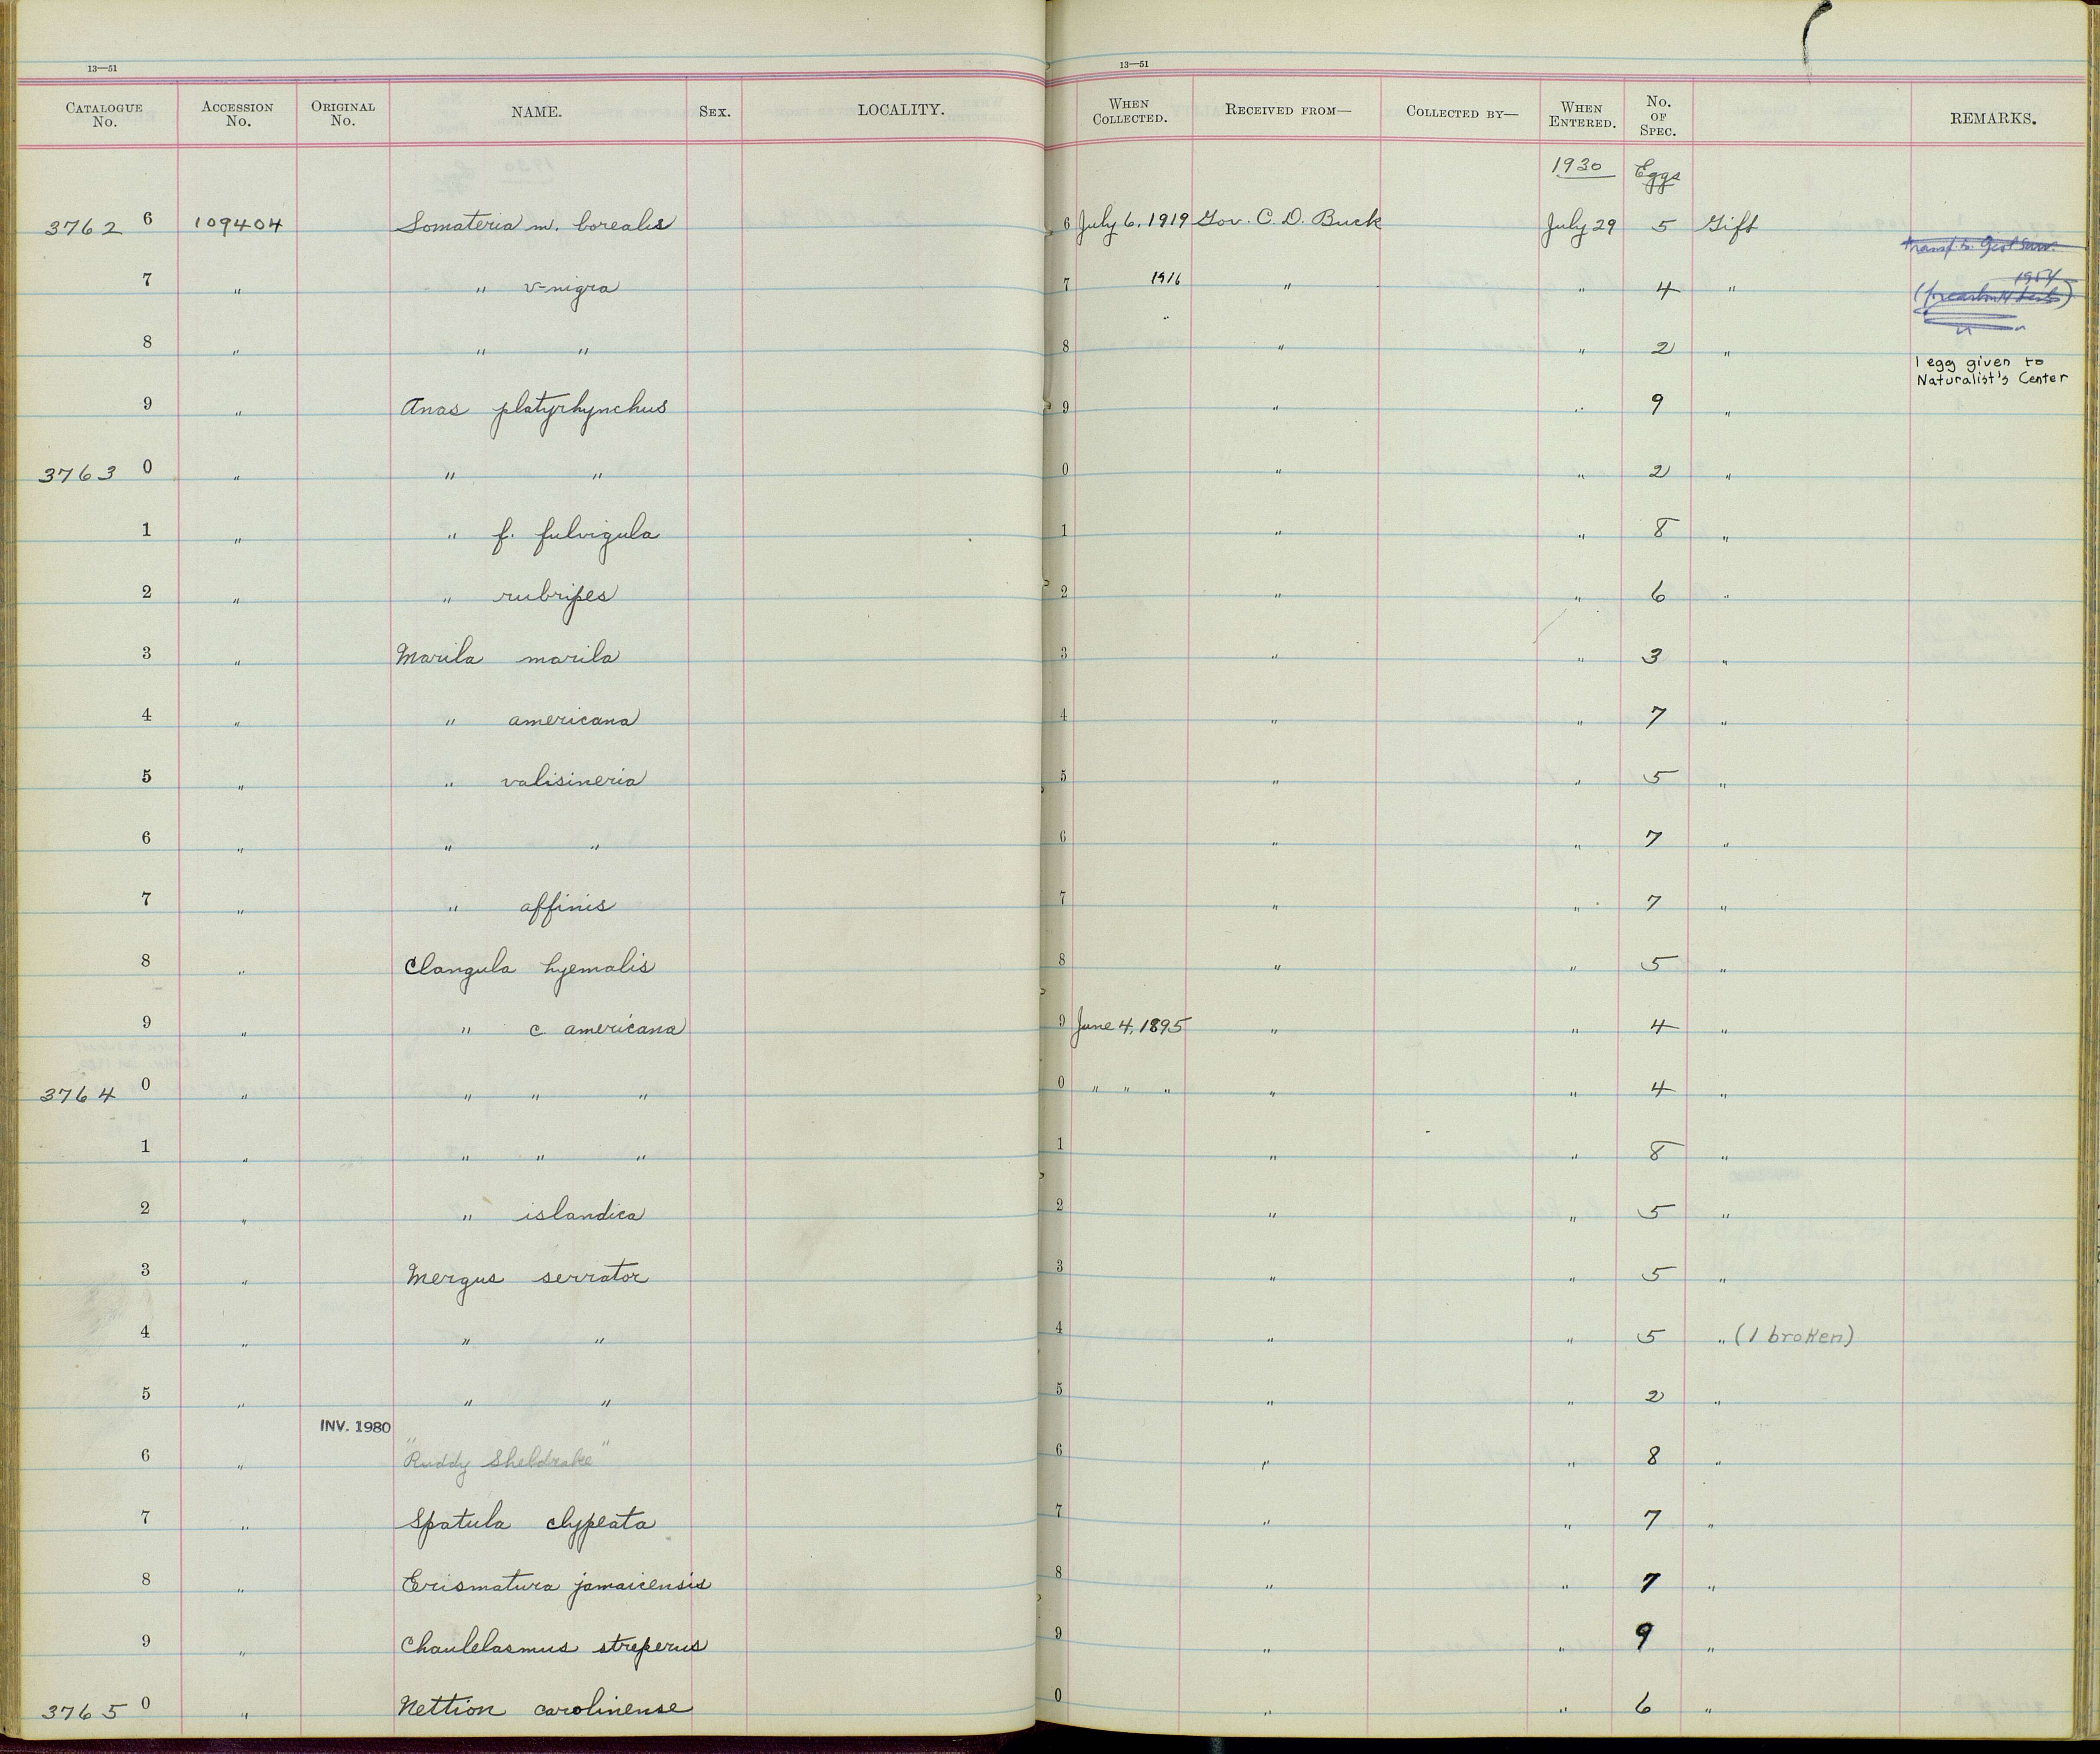 13—51 13—51
CATALOGUE No. ACCESSION No. ORIGINAL No. NAME. SEX. LOCALITY. WHEN COLLECTED. RECEIVED FROM— COLLECTED BY— WHEN ENTERED. No. OF SPEC. REMARKS.
1930 Eggs
3762 6 109404 Somateria m. borealis 6 July 6, 1919 Gov. C. D. Buck July 29 5 Gift
transf. to Geol Surv.
1954
7 " " v-nigra 7 1916 " " 4 "
8 " " " 8 " " 2 "
1 egg given to
Naturalist's Center
9 " Anas platyrhynchus 9 " " 9 "
3763 0 " " " 0 " " 2 "
1 " " f. fulvigula 1 " " 8 "
2 " " rubripes 2 " " 6 "
3 " Marila marila 3 " " 3 "
4 " " americana 4 " " 7 "
5 " " valisineria 5 " " 5 "
6 " " " 6 " " 7 "
7 " " affinis 7 " " 7 "
8 " Clangula hyemalis 8 " " 5 "
9 " " c. americana 9 June 4, 1895 " " 4 "
3764 0 " " " " 0 " " " " " 4 "
1 " " " " 1 " " 8 "
2 " " islandica 2 " " 5 "
3 " Mergus serrator 3 " " 5 "
4 " " " 4 " " 5 " (1 broken)
5 " " " 5 " " 2 "
INV. 1980
6 " "Ruddy Sheldrake" 6 " " 8 "
7 " Spatula clypeata 7 " " 7 "
8 " Erismatura jamaicensis 8 " " 7 "
9 " Chaulelasmus streperus 9 " " 9 "
3765 0 " Nettion carolinense 0 " " 6 "